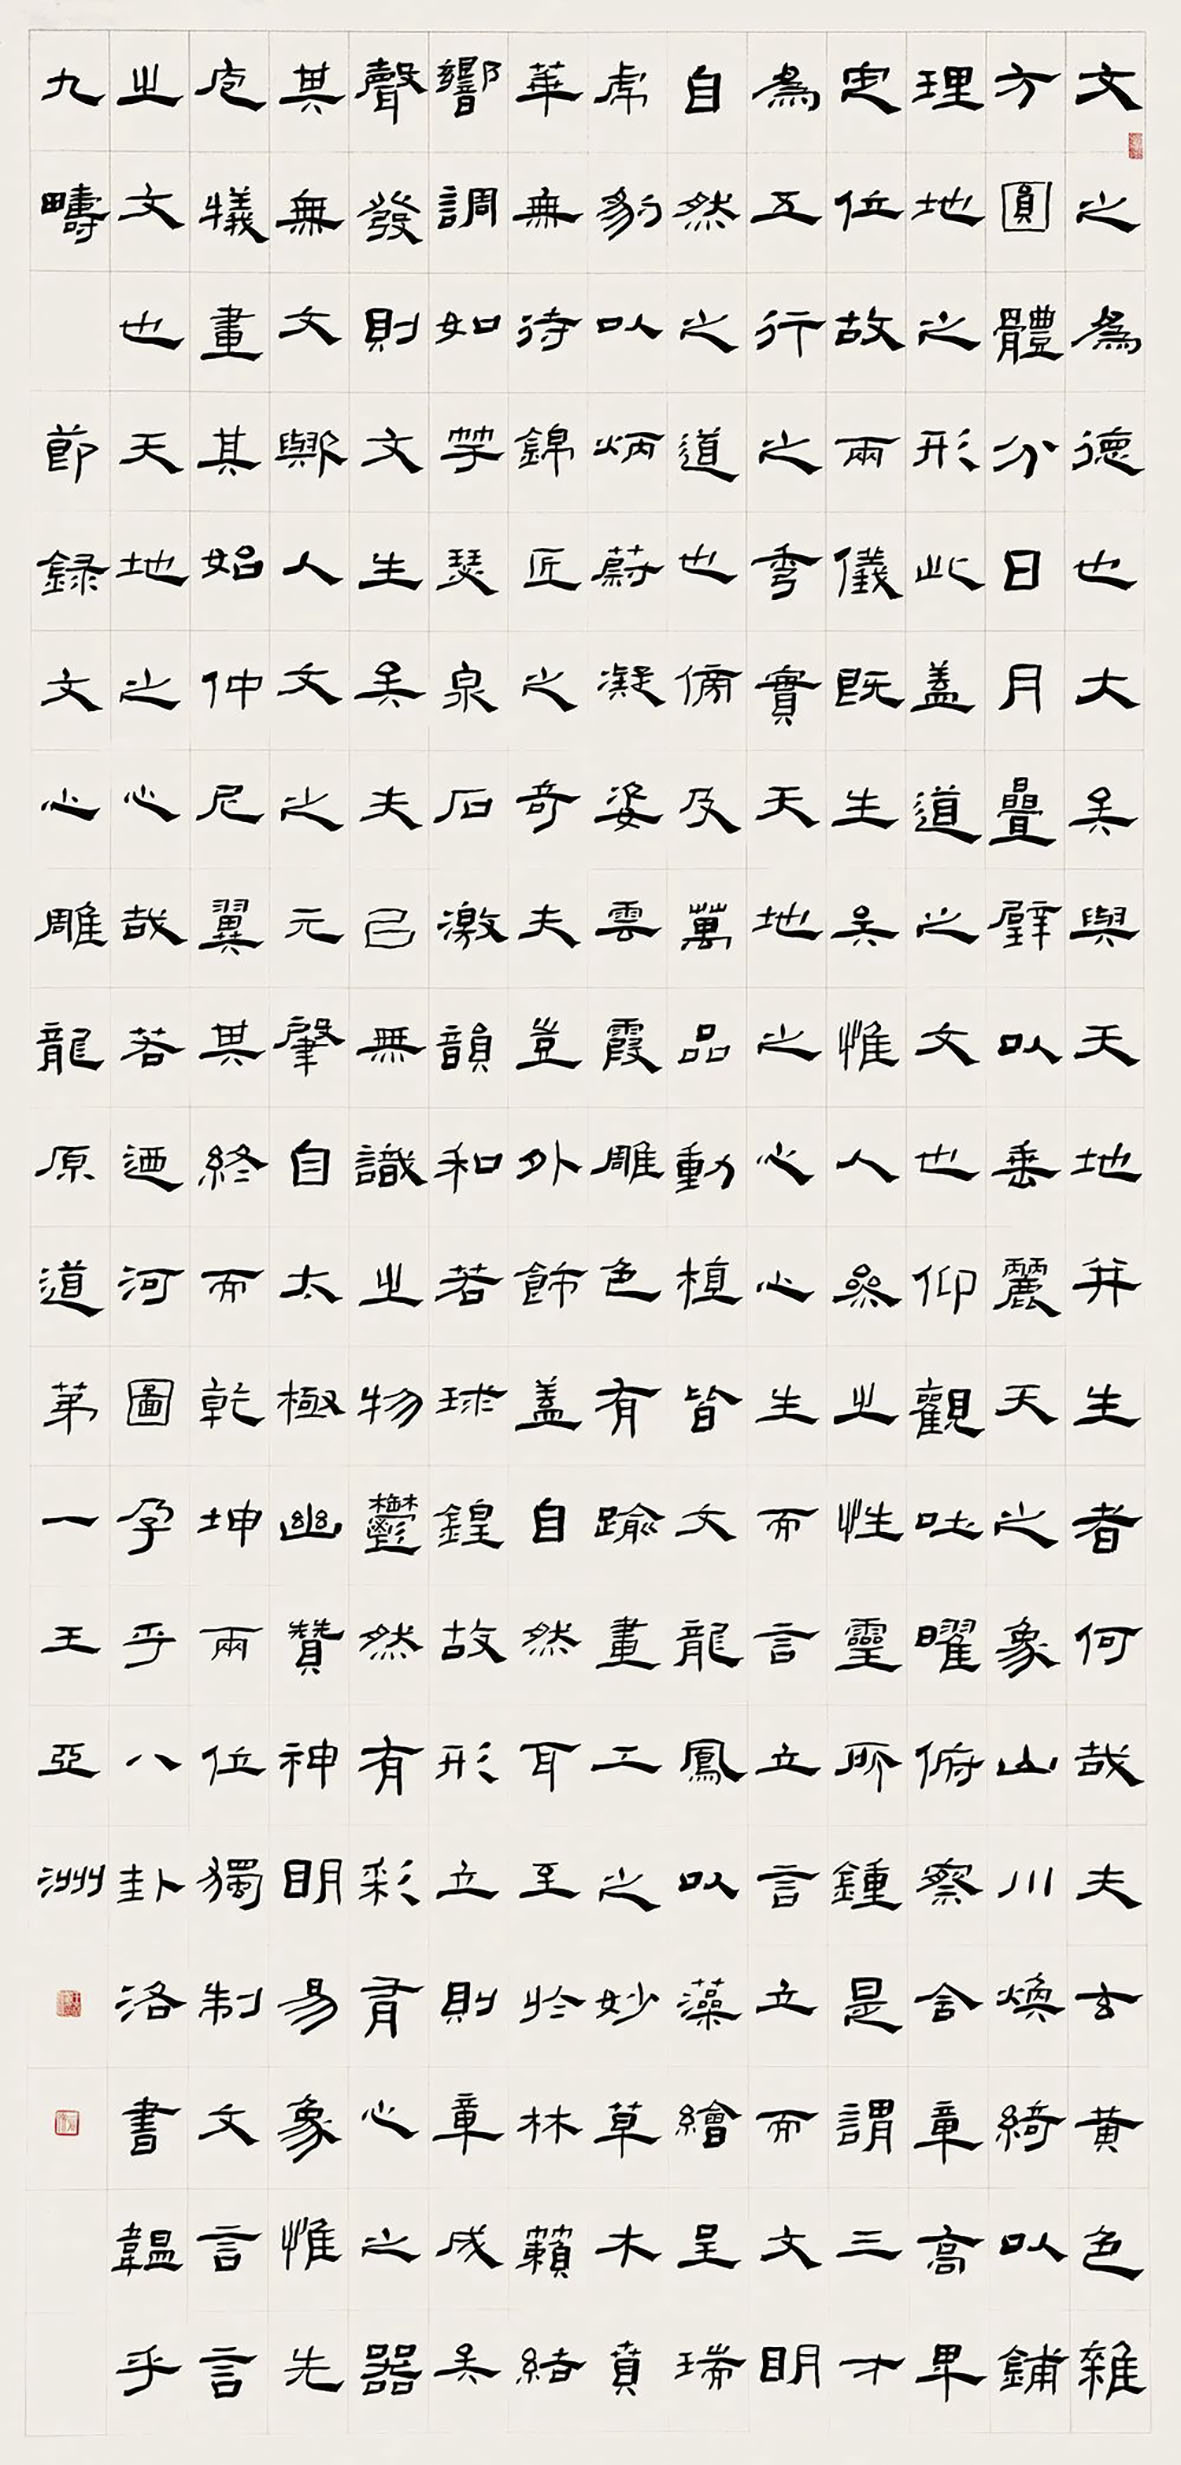 文之為德也大矣與天地并生者何哉夫玄黃色雜
方圓體分日月疊璧以垂麗天之象山川煥綺以鋪
理地之形此蓋道之文也仰觀吐曜俯察含章高卑
定位故兩儀既生矣惟人參之性靈所鍾是謂三才
為五行之秀實天地之心心生而言立言立而文明
自然之道也傍及萬品動植皆文龍鳳以藻繪呈瑞
虎豹以炳蔚凝姿雲霞雕色有踰畫工之妙草木賁
華無待錦匠之奇夫豈外飾蓋自然耳至於林籟結
響調如竽瑟泉石激韻和若球鍠故形立則章成矣
聲發則文生矣夫以無識之物鬱然有彩有心之器
其無文歟人文之元肇自太極幽贊神明易象惟先
庖犧畫其始仲尼翼其終而乾坤兩位獨制文言言
之文也天地之心哉若迺河圖孕乎八卦洛書韞乎
九疇 節録文心雕龍原道第一王亞洲